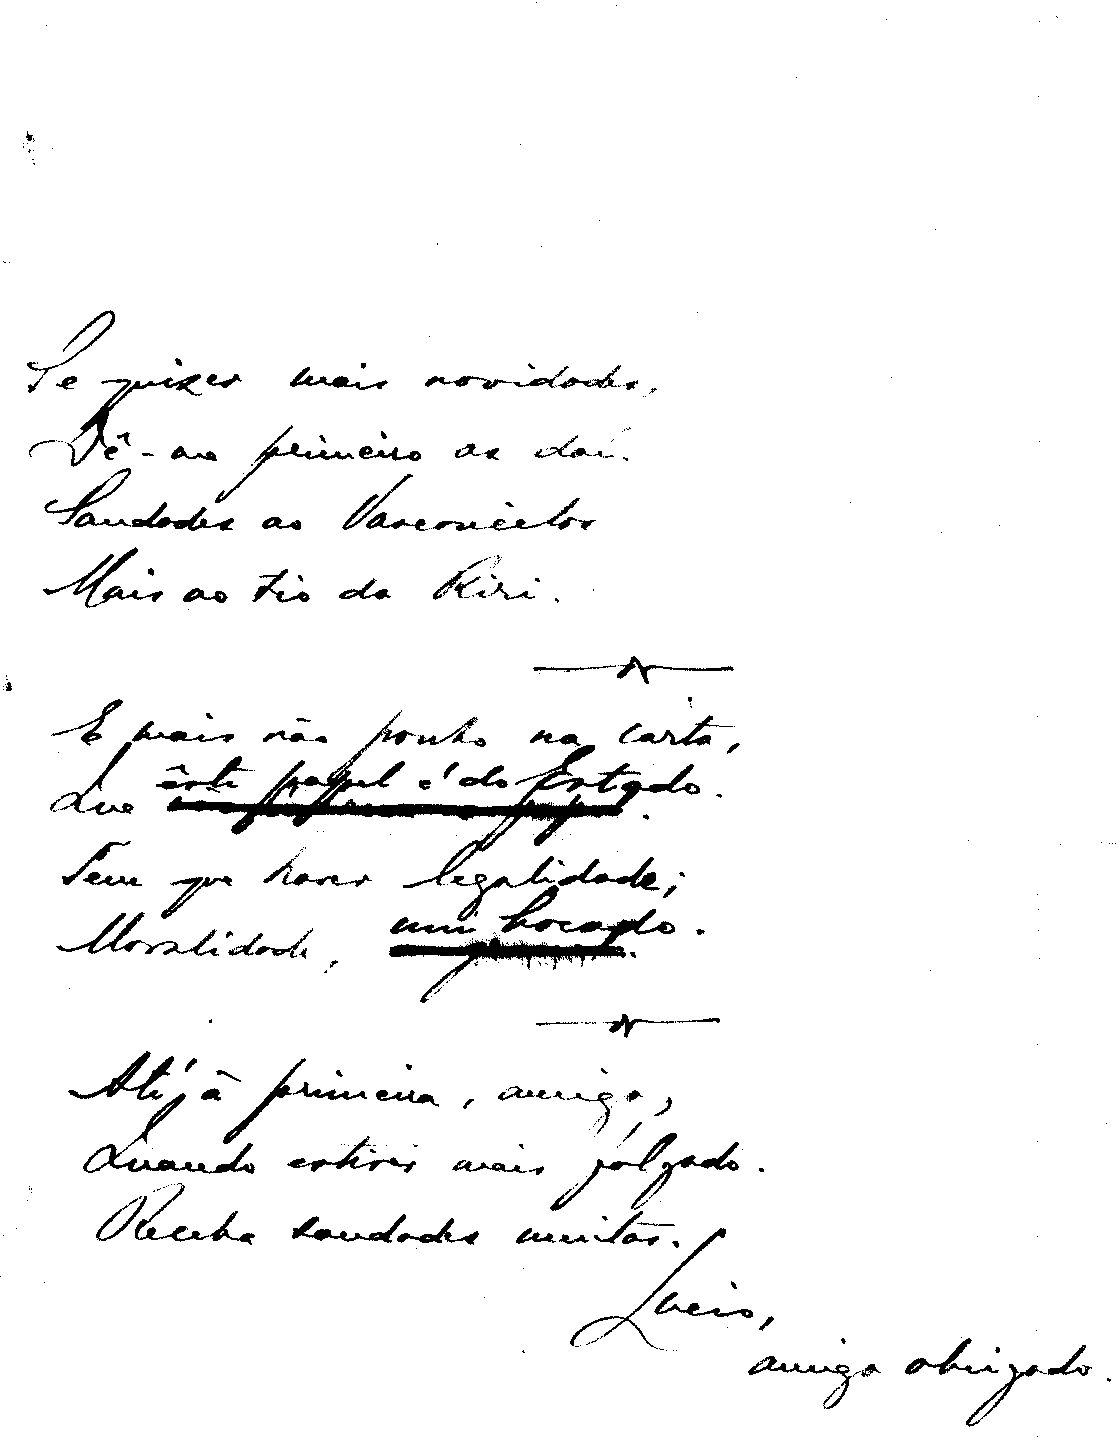 Se quizer mais novidades,
Dê-me primeiro as daí.
Saudades ao Vasconcelos
Mais ao tio da Riri.
E mais não ponho na carta,
Que êste papel é do Estado.
Tem que haver legalidade;
Moralidade, um bocado.
Até à primeira, amigo,
Quando estiver mais folgado.
Receba saudades muitas.
Lucio,
amigo obrigado.